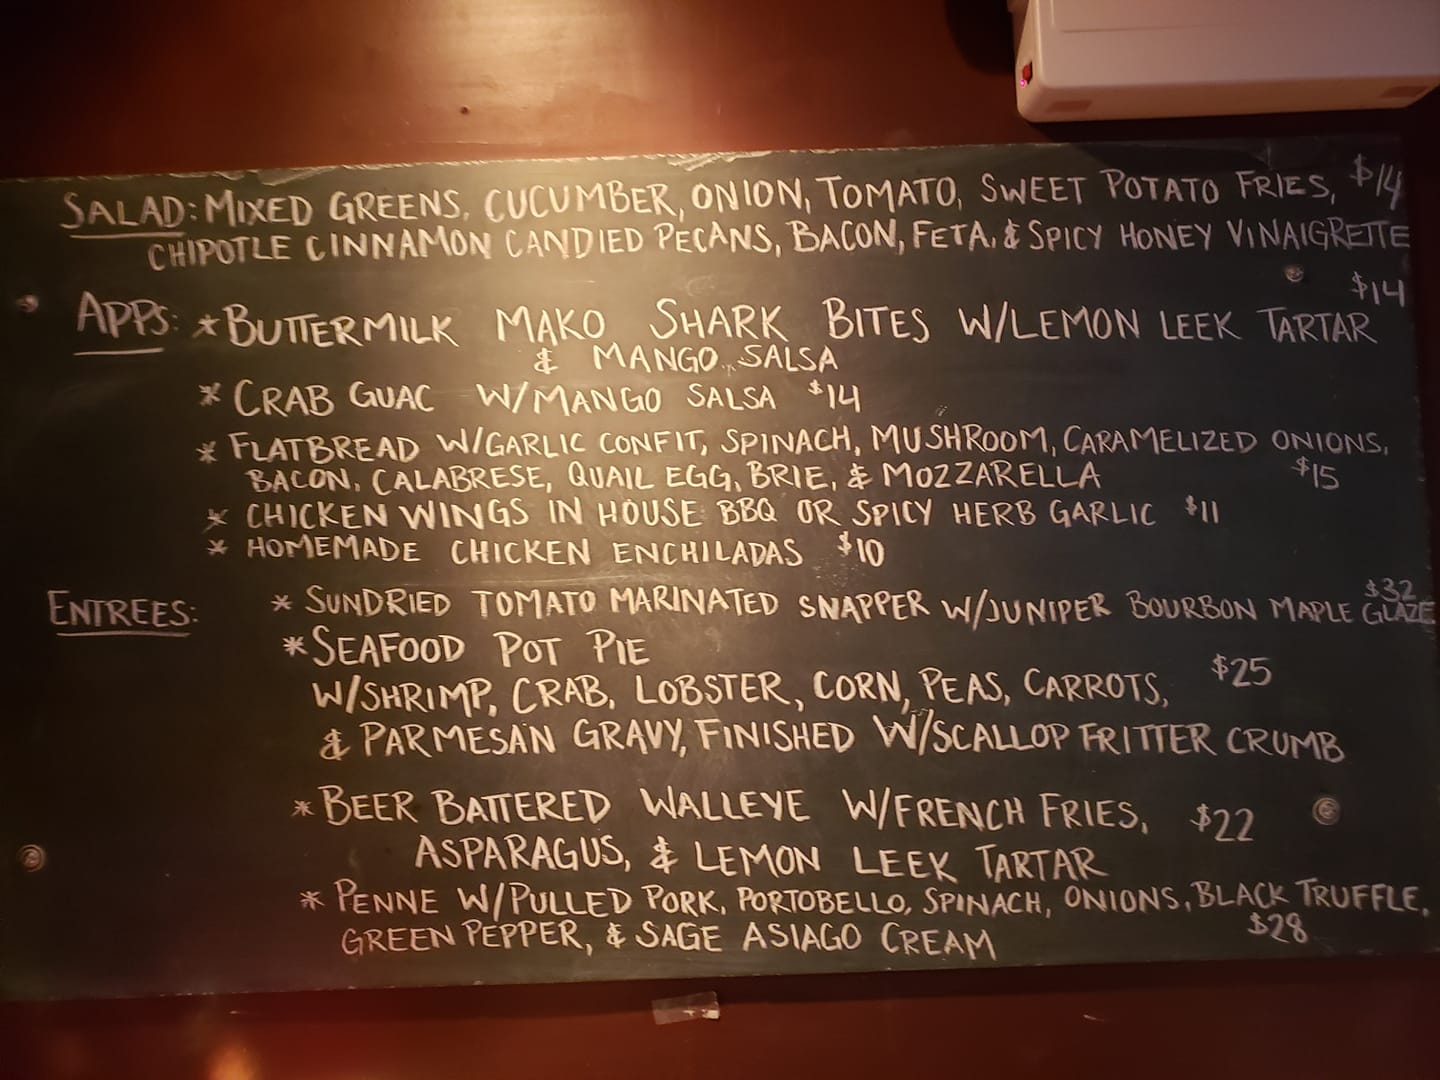 SALAD: MIXED GREENS, CUCUMBER, ONION, TOMATO, SWEET POTATO FRIES, $14
CHIPOTLE CINNAMON CANDIED PECANS, BACON, FETA, & SPICY HONEY VINAIGRETTE
$14
APPS: * BUTTERMILK MAKO SHARK BITES W/LEMON LEEK TARTAR
& MANGO SALSA
* CRAB GUAC W/MANGO SALSA $14
* FLATBREAD W/GARLIC CONFIT, SPINACH, MUSHROOM, CARAMELIZED ONIONS,
BACON, CALABRESE, QUAIL EGG, BRIE, & MOZZARELLA $15
* CHICKEN WINGS IN HOUSE BBQ OR SPICY HERB GARLIC $11
* HOMEMADE CHICKEN ENCHILADAS $10
$32
ENTREES: * SUNDRIED TOMATO MARINATED SNAPPER W/JUNIPER BOURBON MAPLE GLAZE
* SEAFOOD POT PIE
W/SHRIMP, CRAB, LOBSTER, CORN, PEAS, CARROTS, $25
& PARMESAN GRAVY, FINISHED W/SCALLOP FRITTER CRUMB
* BEER BATTERED WALLEYE W/FRENCH FRIES, $22
ASPARAGUS, & LEMON LEEK TARTAR
* PENNE W/PULLED PORK, PORTOBELLO, SPINACH, ONIONS, BLACK TRUFFLE,
GREEN PEPPER, & SAGE ASIAGO CREAM $28